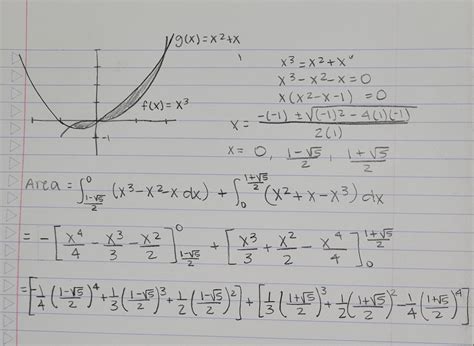 g(x) = x²+x
f(x) = x³
-1
x³ = x² + x
x³ - x² - x = 0
x(x² - x - 1) = 0
x = -(-1) ± √((-1)2 - 4(1)(-1)) / 2(1)
x = 0, (1-√5)/2, (1+√5)/2
Area = ∫_{(1-√5)/2}^{0} (x³ - x² - x dx) + ∫_{0}^{(1+√5)/2} (x² + x - x³) dx
= -[x⁴/4 - x³/3 - x²/2]_{(1-√5)/2}^{0} + [x³/3 + x²/2 - x⁴/4]_{0}^{(1+√5)/2}
= [-1/4 ((1-√5)/2)⁴ + 1/3 ((1-√5)/2)³ + 1/2 ((1-√5)/2)²] + [1/3 ((1+√5)/2)³ + 1/2 ((1+√5)/2)² - 1/4 ((1+√5)/2)⁴]